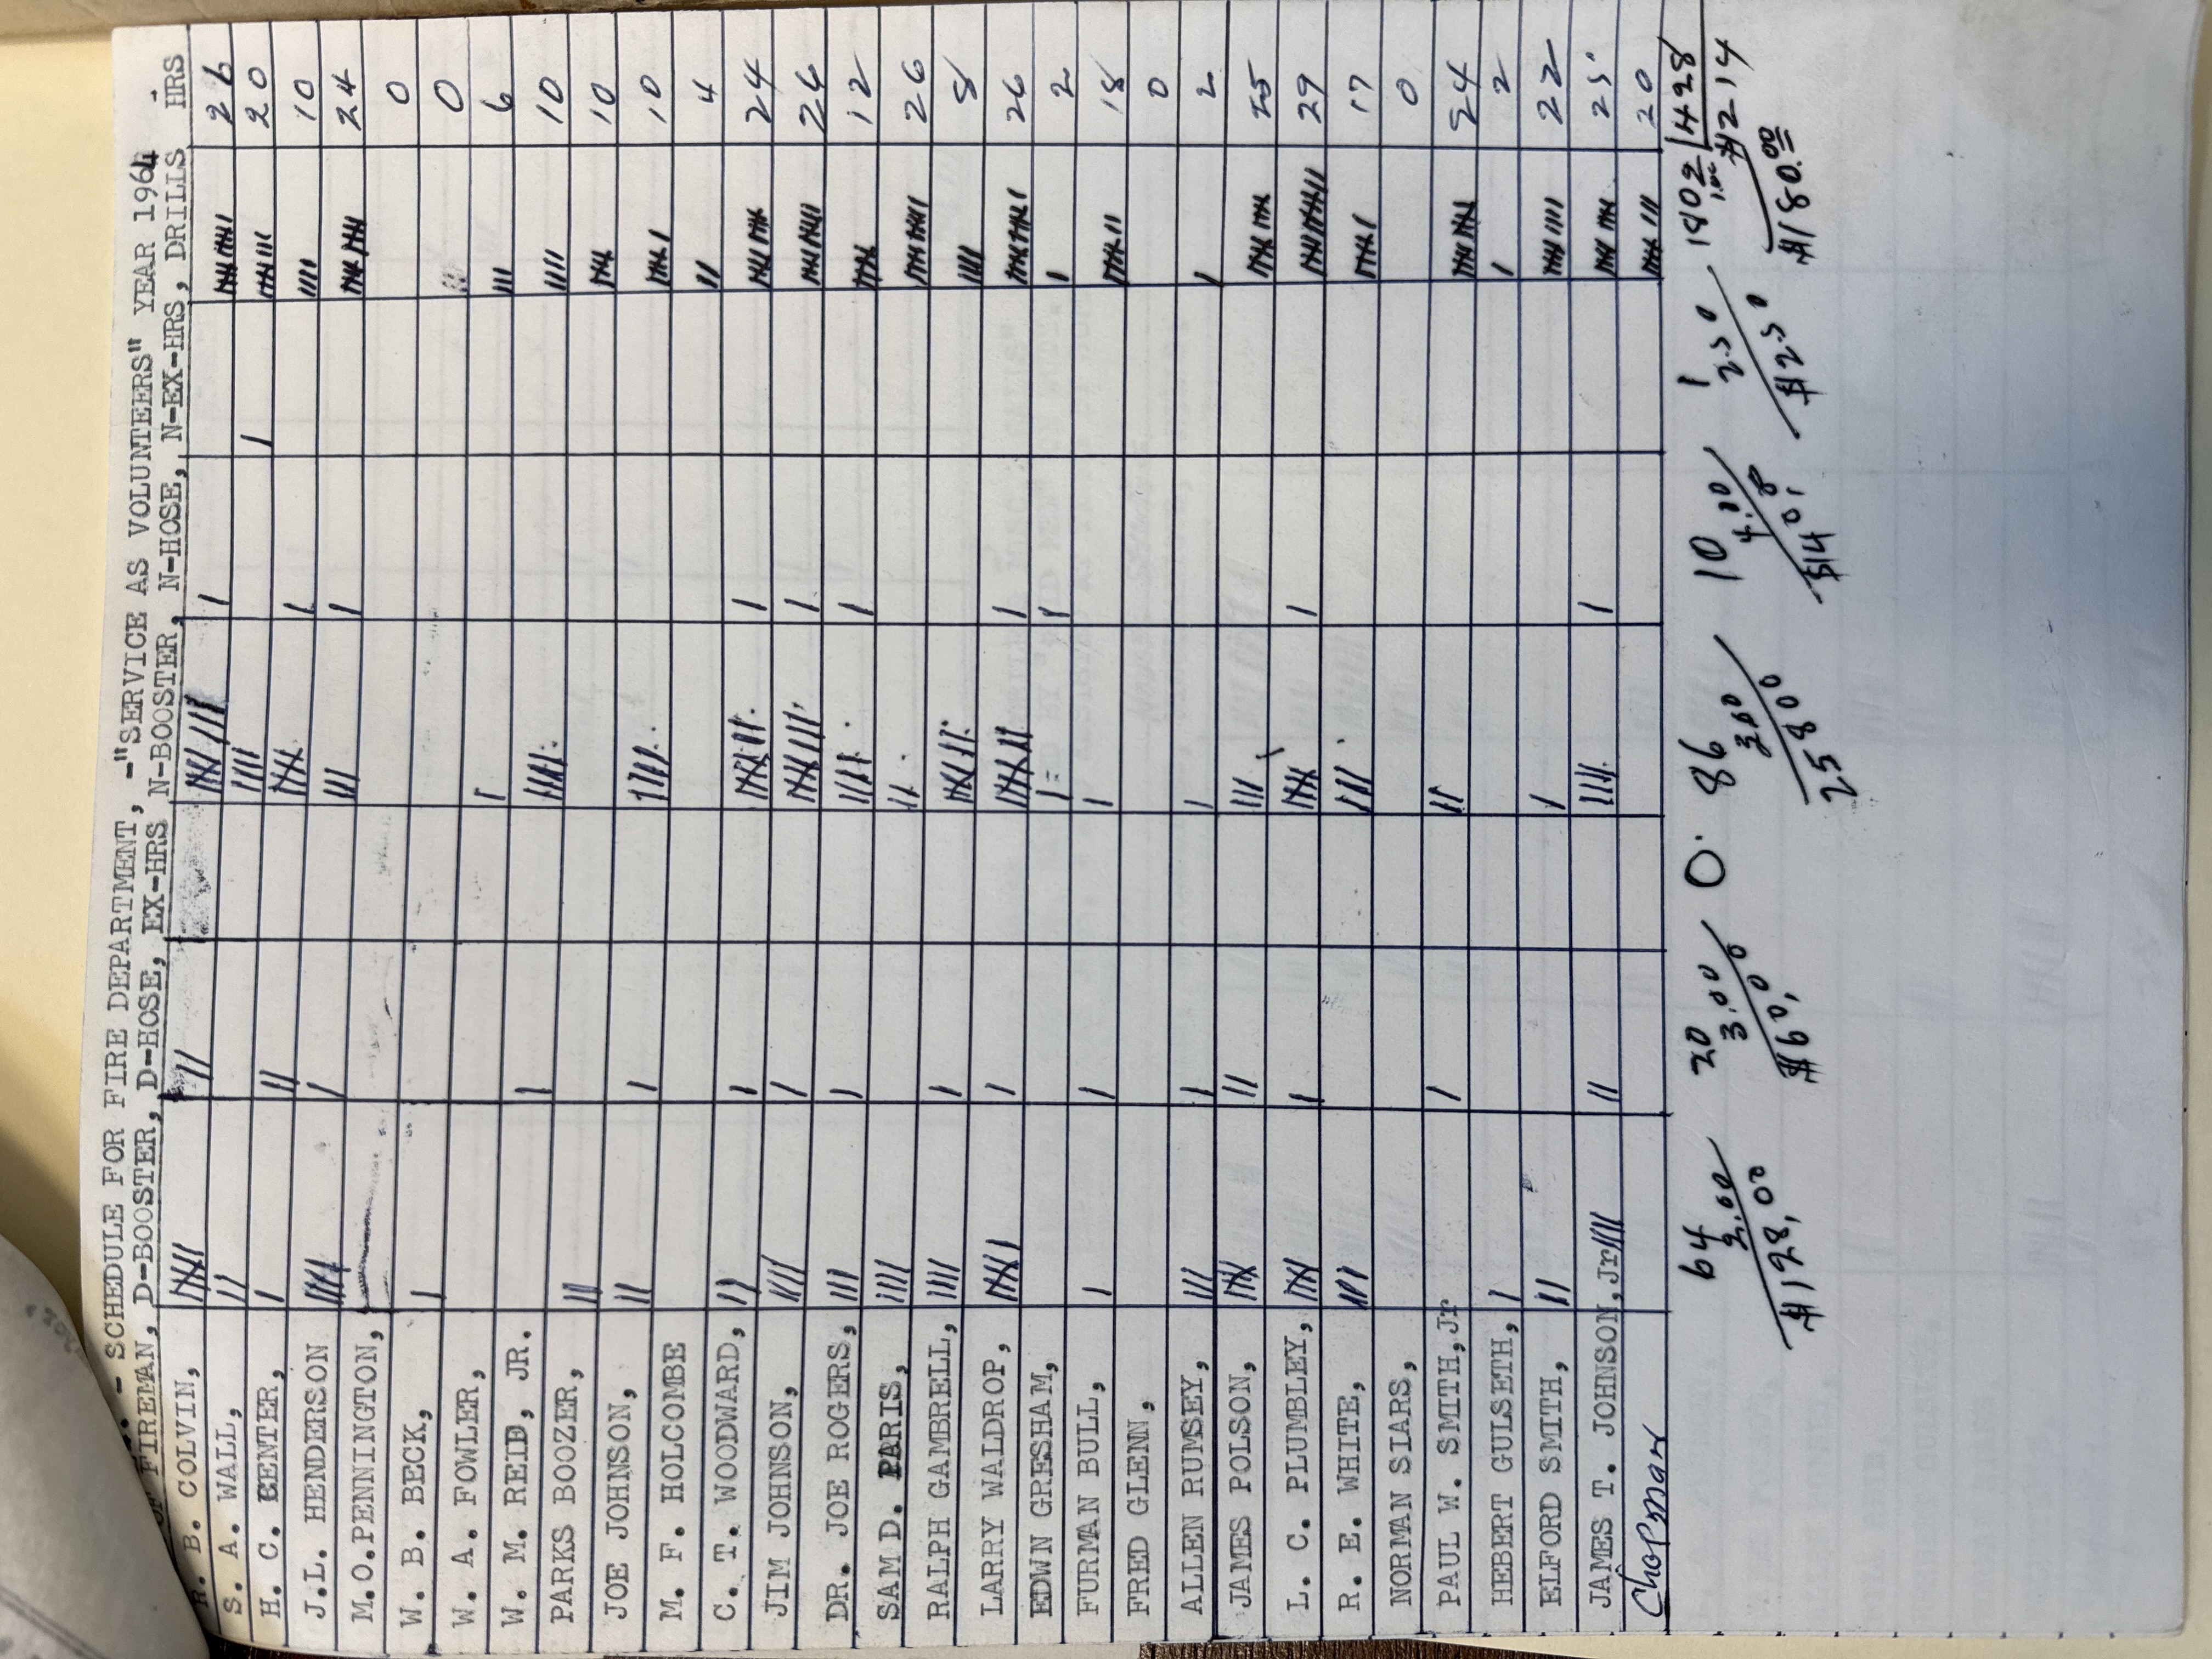 - SCHEDULE FOR FIRE DEPARTMENT, -"SERVICE AS VOLUNTEERS" YEAR 1964
OF FIREMAN, D-BOOSTER, D-HOSE, EX-HRS N-BOOSTER, N-HOSE, N-EX-HRS, DRILLS HRS
R. B. COLVIN, 26
S. A. WALL, 20
H. C. CENTER, 10
J.L. HENDERSON 24
M.O.PENNINGTON, 0
W. B. BECK, 0
W. A. FOWLER, 6
W. M. REID, JR. 10
PARKS BOOZER, 10
JOE JOHNSON, 10
M. F. HOLCOMBE 4
C. T. WOODWARD, 24
JIM JOHNSON, 26
DR. JOE ROGERS, 12
SAM D. PARIS, 26
RALPH GAMBRELL, 8
LARRY WALDROP, 26
EDWN GRESHAM, 2
FURMAN BULL, 18
FRED GLENN, 0
ALLEN RUMSEY, 2
JAMES POLSON, 25
L. C. PLUMBLEY, 29
R. E. WHITE, 17
NORMAN SIARS, 0
PAUL W. SMITH, Jr 24
HEBERT GULSETH, 2
ELFORD SMITH, 22
JAMES T. JOHNSON, Jr 25
Chapman 20
64 20 0. 86 10 1 180 2 428
2.00 3.00 3.00 4.00 2.50 1.00 $214
$128.00 $60.00 258 00 $40.00 $2.50 $180.00